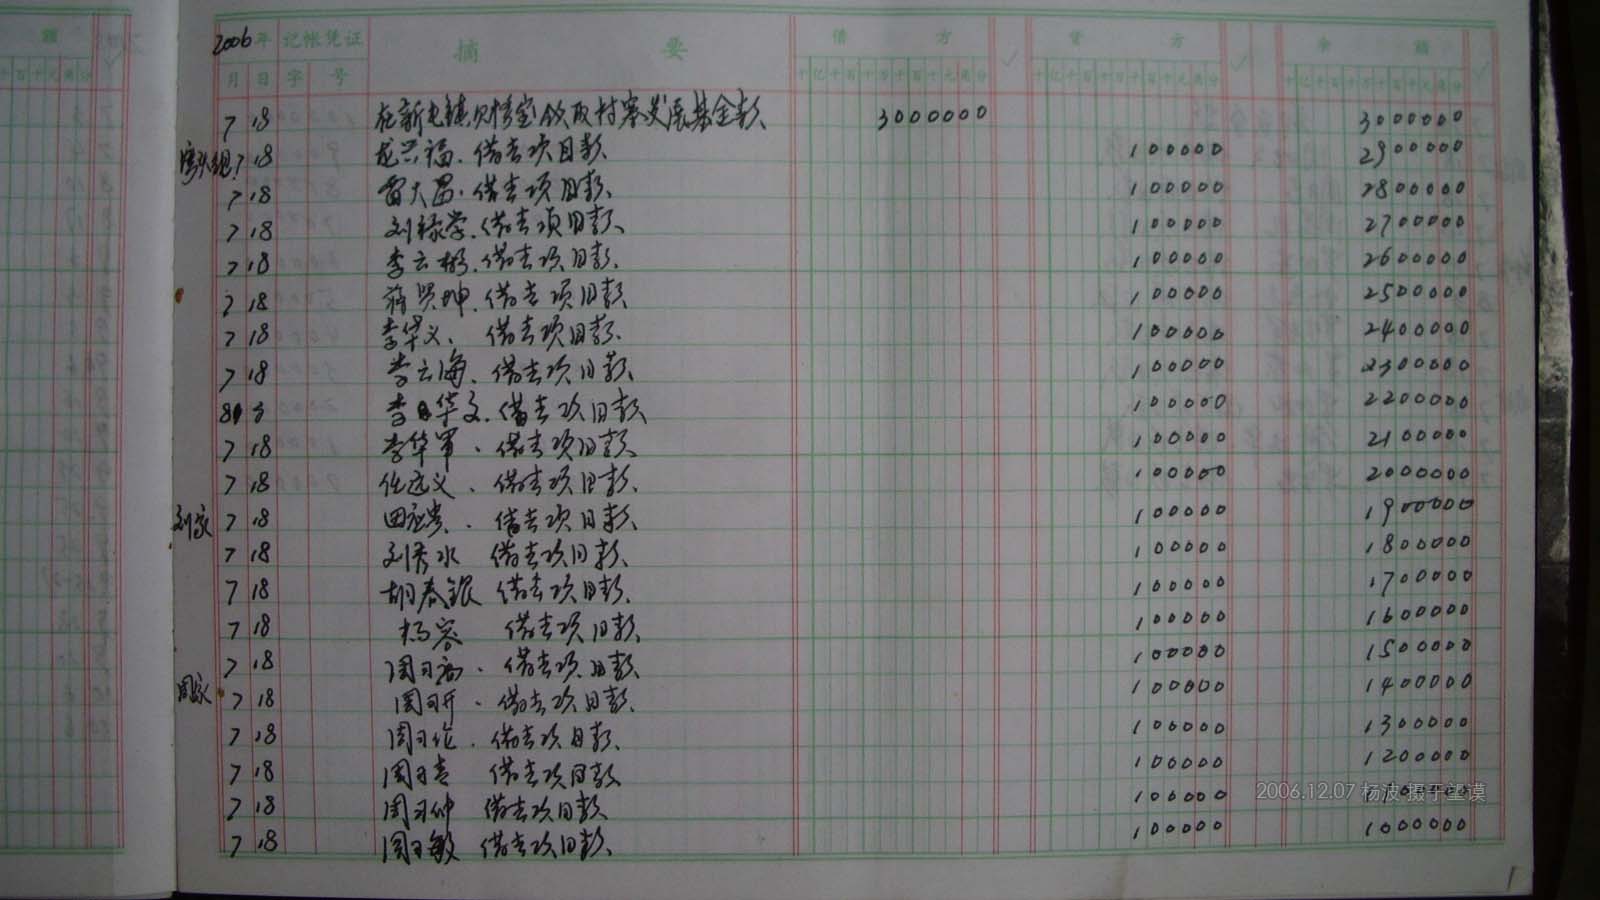 额
2006年 记帐凭证 摘要 借方 贷方 余额
月 日 字 号 十亿千百十万千百十元角分 十亿千百十万千百十元角分 十亿千百十万千百十元角分
7 18 在新屯镇 领取村寨发展基金款 3000000 3000000
组 7 18 龙兴福.借去项目款 100000 2900000
7 18 雷大昌.借去项目款 100000 2800000
7 18 刘禄学.借去项目款 100000 2700000
7 18 李云彬.借去项目款 100000 2600000
7 18 蒋兴坤.借去项目款 100000 2500000
7 18 李华义. 借去项目款 100000 2400000
7 18 李云海. 借去项目款 100000 2300000
李华文.借去项目款 100000 2200000
7 18 李华军.借去项目款 100000 2100000
7 18 伍远义.借去项目款 100000 2000000
刘家 7 18 田应贵.借去项目款 100000 1900000
7 18 刘秀水 借去项目款 100000 1800000
7 18 胡春银 借去项目款 100000 1700000
7 18 杨容 借去项目款 100000 1600000
7 18 周习 借去项目款 100000 1500000
周家 7 18 周习开.借去项目款 100000 1400000
7 18 周习作.借去项目款 100000 1300000
7 18 周习吉 借去项目款 100000 1200000
7 18 周习仲 借去项目款 100000 1100000
7 18 周习敏 借去项目款 100000 1000000
2006.12.07 杨波 摄于望谟